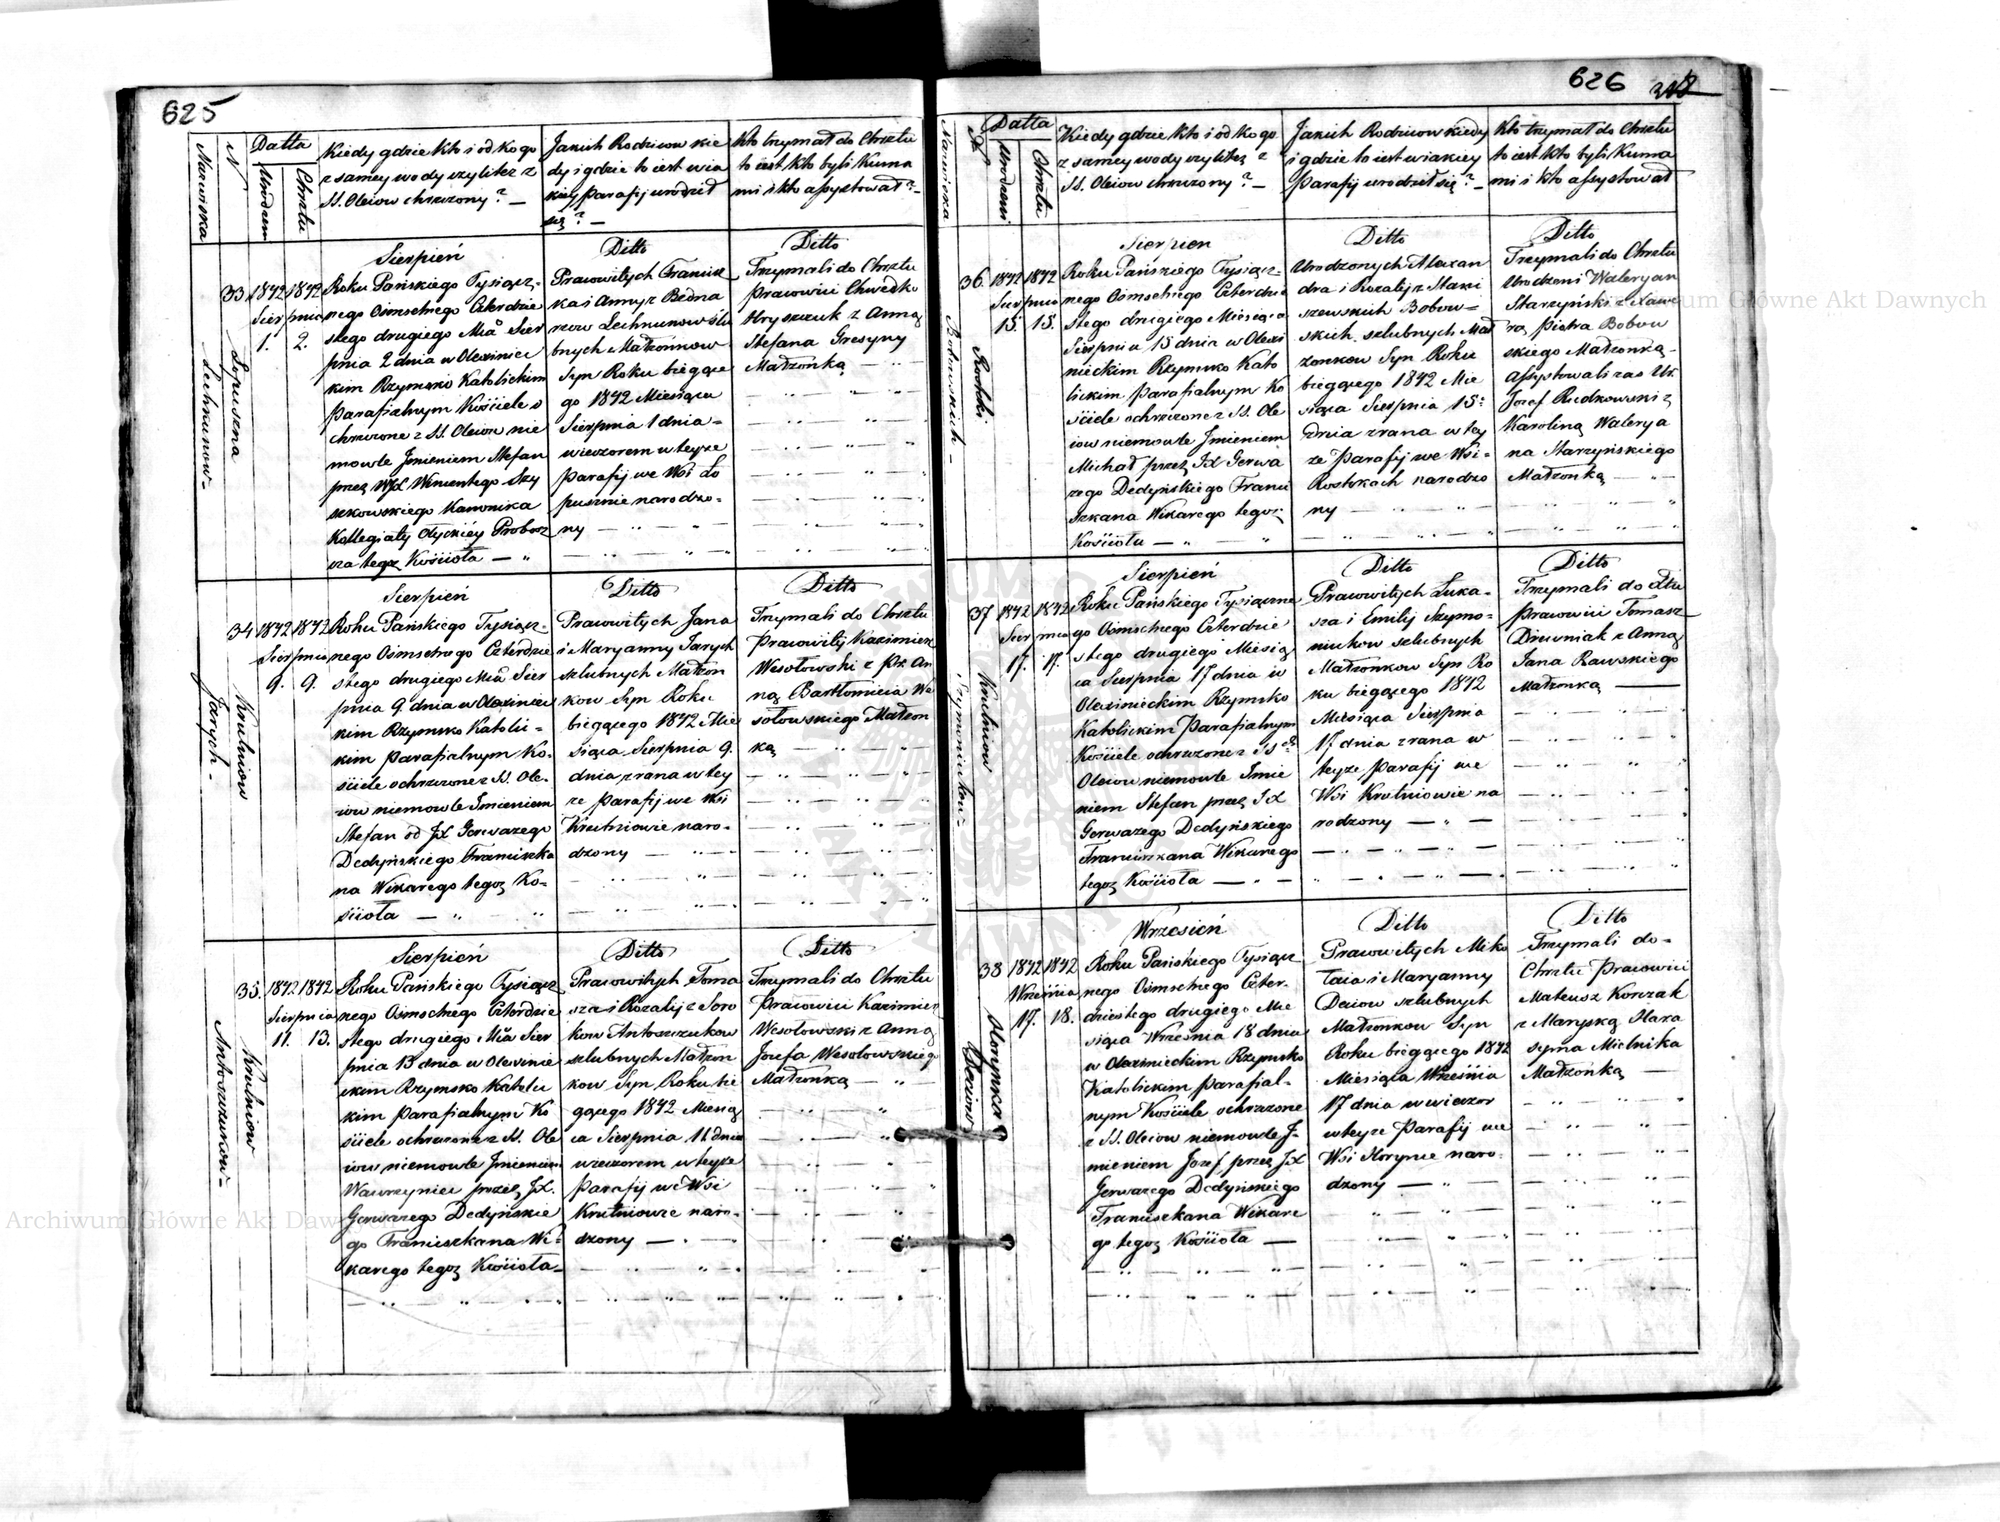 625
Nazwiska
N
Datta
Urodzeni
Chrztu
Kiedy gdzie kto i od kogo
z samey wody czyli też z
SS. Oleiow chrzczony? —
Jakich Rodzicow kie
dy i gdzie to iest w ia
kiey Parafij urodził
się? —
Kto trzymał do Chrztu
to iest kto byli Kuma
mi i kto assystował? —
Łopuszna
Lechnunow
33
1842 1842
Sierpnia
1. 2.
Sierpień
Roku Pańskiego Tysiącz-
nego Osmsetnego Czterdzie
stego drugiego Mia Sier
pnia 2 dnia w Olexiniec
kim Rzymsko Katolickim
Parafialnym Kościele o
chrzczone z SS. Oleiow nie
mowle Jmieniem Stefan
przez WJX Wincentego Szy
szkowskiego Kanonika
Kollegiaty Ołyckiey Probosz
cza tegoż Kościoła —
Ditto
Prawowitych Francisz
ka i Anny z Bedna
rzow Lechnunow ślu
bnych Małżonkow
Syn Roku bieżące
go 1842 Miesiąca
Sierpnia 1 dnia
wieczorem w teyże
Parafij we Wsi Ło
pusznie narodzo-
ny —
Ditto
Trzymali do Chrztu
Pracowici Chwedko
Hryszczuk z Anną
Stefana Gresyny
Małżonką
Krutniow
Jarych
34
1842 1842
Sierpnia
9. 9.
Sierpień
Roku Pańskiego Tysiącz-
nego Osmsetnego Czterdzie
stego drugiego Mia Sier
pnia 9 dnia w Olexiniec
kim Rzymsko Katolic-
kim Parafialnym Ko-
ściele ochrzczone z SS. Ole-
iow niemowle Jmieniem
Stefan od JX Gerwazego
Dedyńskiego Franciszka
na Wikarego tegoż Ko-
ścioła —
Ditto
Prawowitych Jana
i Maryanny Jarych
szlubnych Małżon
kow Syn Roku
bieżącego 1842 Mie
siąca Sierpnia 9.
dnia zrana w tey
że Parafij we Wsi
Krutniowie naro-
dzony —
Ditto
Trzymali do Chrztu
Pracowity Kazimierz
Wesołowski z Pr. An
ną Bartłomieia We
sołowskiego Małżon
ką —
Krutniow
Antoszczukow
35.
1842 1842
Sierpnia
11. 13.
Sierpień
Roku Pańskiego Tysiącz
nego Osmsetnego Czterdzie
stego drugiego Mia Sier
pnia 13 dnia w Olexinie
ckim Rzymsko Katolic
kim Parafialnym Ko
ściele ochrzczone z SS. Ole
iow niemowle Jmieniem
Wawrzyniec przez JX.
Gerwazego Dedyńskie
go Franciszkana Wi-
karego tegoż Kościoła —
Ditto
Prawowitych Toma
sza i Rozalij z Soro
kow Antoszczukow
szlubnych Małżon
kow Syn Roku bie
żącego 1842 Miesią
ca Sierpnia 11 dnia
wieczorem w teyże
Parafij we Wsi
Krutniowie naro-
dzony —
Ditto
Trzymali do Chrztu
Pracowici Kazimierz
Wesołowski z Anną
Jozefa Wesołowskiego
Małżonką —
626
Nazwiska
N
Datta
Urodzeni
Chrztu
Kiedy gdzie kto i od kogo
z samey wody czyli też z
SS. Oleiow chrzczony? —
Jakich Rodzicow kiedy
i gdzie to iest w iakiey
Parafij urodził się? —
Kto trzymał do Chrztu
to iest kto byli Kuma
mi i kto assystował
Bobowskich
Rostoki
36
1842 1842
Sierpnia
15. 15.
Sierpien
Roku Pańskiego Tysiącz-
nego Osmsetnego Czterdzie
stego drugiego Miesiąca
Sierpnia 15 dnia w Olexi
nieckim Rzymsko Kato
lickim Parafialnym Ko
ściele ochrzczone z SS. Ole
iow niemowle Jmieniem
Michał przez JX Gerwa
zego Dedyńskiego Franci
szkana Wikarego tegoż
Kościoła —
Ditto
Urodzonych Alexan
dra i Rozalij z Stani
szewskich Bobow-
skich szlubnych Mał
żonkow Syn Roku
bieżącego 1842 Mie
siąca Sierpnia 15
dnia zrana w tey
że Parafij we Wsi-
Rostokach narodzo
ny —
Ditto
Trzymali do Chrztu
Urodzeni Waleryan
Starzyński z Xawe
rą Piotra Bobow
skiego Małżonką
Assystowali zaś Ur.
Jozef Rudkowski z
Karoliną Walerya
na Starzyńskiego
Małżonką —
Krutniow
Szymoniukow
37
1842 1842
Sierpnia
17. 17.
Sierpień
Roku Pańskiego Tysiączne
go Osmsetnego Czterdzie
stego drugiego Miesią
ca Sierpnia 17 dnia w
Olexinieckim Rzymsko
Katolickim Parafialnym
Kościele ochrzczone z SS
Oleiow niemowle Jmie
niem Stefan przez JX
Gerwazego Dedyńskiego
Franciszkana Wikarego
tegoż Kościoła —
Ditto
Prawowitych Łuka-
sza i Emilij Szymo-
niukow szlubnych
Małżonkow Syn Ro
ku bieżącego 1842
Miesiąca Sierpnia
17 dnia zrana w
teyże Parafij we
Wsi Krutniowie na
rodzony —
Ditto
Trzymali do Chtu
Pracowici Tomasz
Drewniak z Anną
Jana Rawskiego
Małżonką —
Horynka
Deciow
38
1842 1842
Września
17. 18.
Wrzesień
Roku Pańskiego Tysiącz
nego Osmsetnego Czter-
dziestego drugiego Mie
siąca Września 18 dnia
w Olexinieckim Rzymsko
Katolickim Parafial-
nym Kościele ochrzczone
z SS. Oleiow niemowle J-
mieniem Jozef przez JX
Gerwazego Dedyńskiego
Franciszkana Wikare
go tegoż Kościoła —
Ditto
Prawowitych Miko
łaia i Maryanny
Deciow szlubnych
Małżonkow Syn
Roku bieżącego 1842
Miesiąca Września
17 dnia w wieczor
w teyże Parafij we
Wsi Horynce naro-
dzony —
Ditto
Trzymali do-
Chrztu Pracowici
Mateusz Korczak
z Maryską Hara
syma Mielnika
Małżonką —
Archiwum Główne Akt Dawnych
Archiwum Główne Akt Dawnych